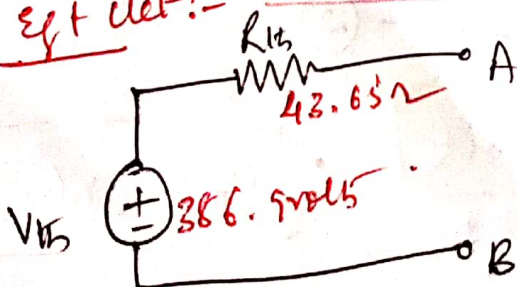 Eqt ckt:-
Rth
A
43.65Ω
+
Vth
386.9volts
-
B